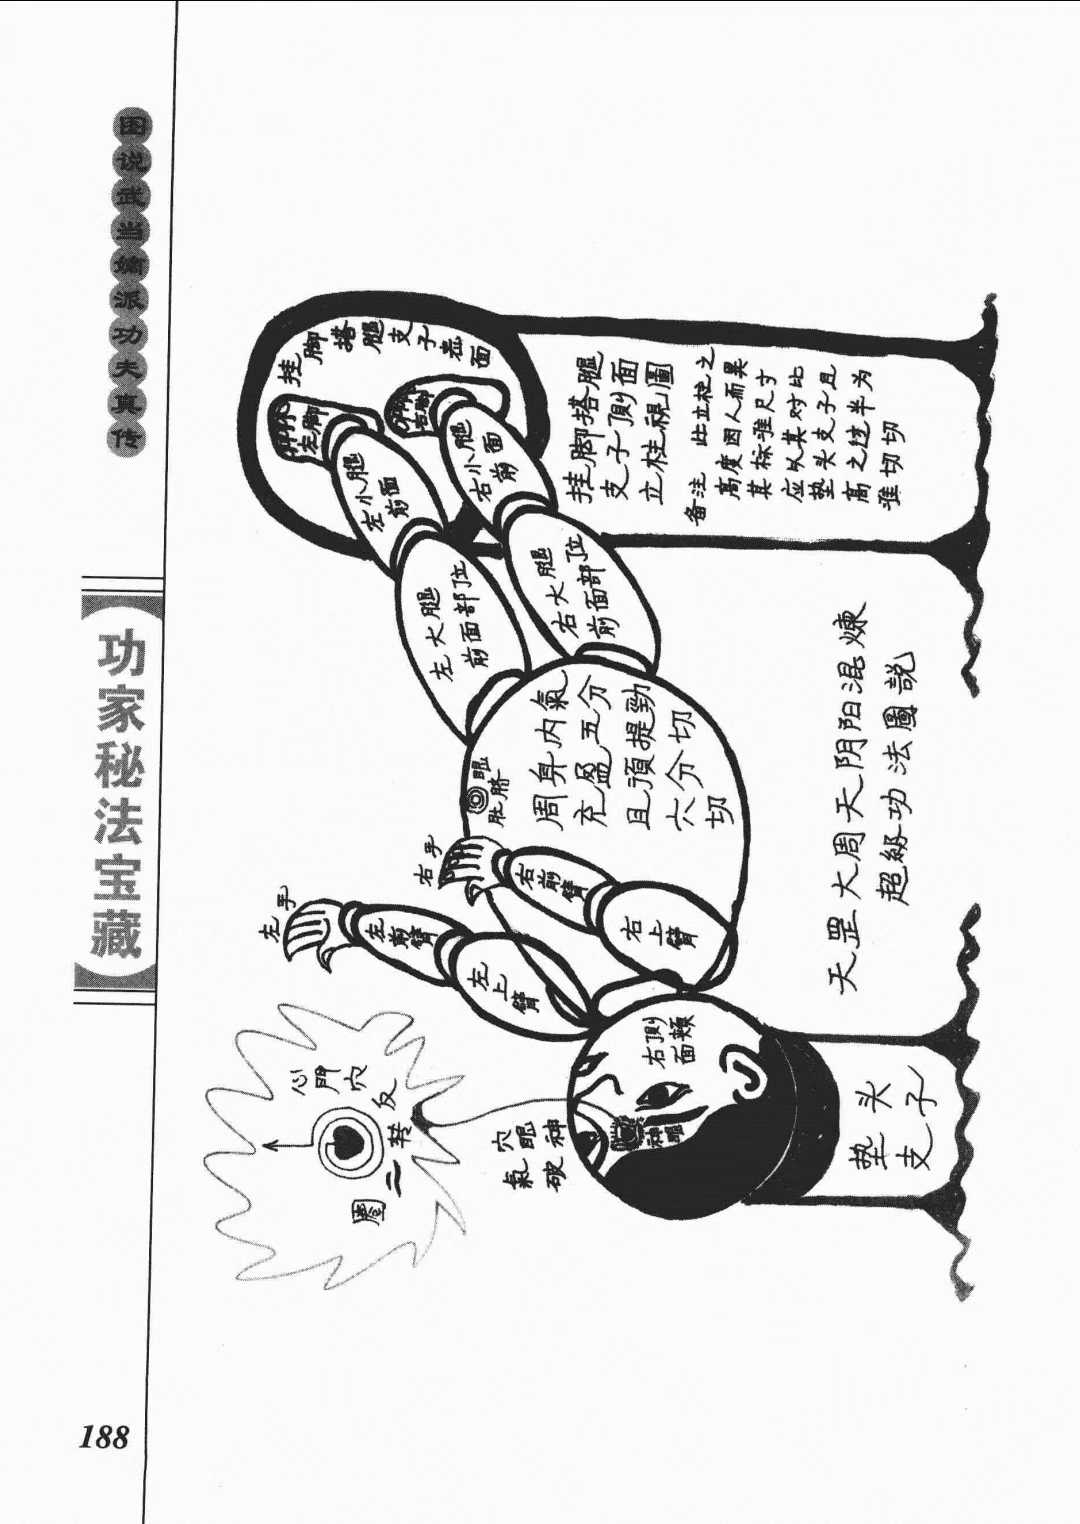 图说武当嫡派功夫真传
功家秘法宝藏
188
挂脚搭腿支子悬面
左脚
右脚
左小腿
前面
右小腿
前面
左大腿
前面部位
右大腿
前面部位
挂脚搭腿
支子側面
立柱視圖
备注 此立柱之
高度因人而異
其标准尺寸
应以其对比
垫头支子且
高之过半为
准切切
周身内氣
充盈五分
且須提勁
六分切
切
肚脐眼
右手
左手
右前臂
右上臂
左前臂
左上臂
右側
面頰
神眼
心門穴
反转二圈
神眼穴
破氣
垫头
支子
天罡大周天阴阳混煉
超級功法圖説